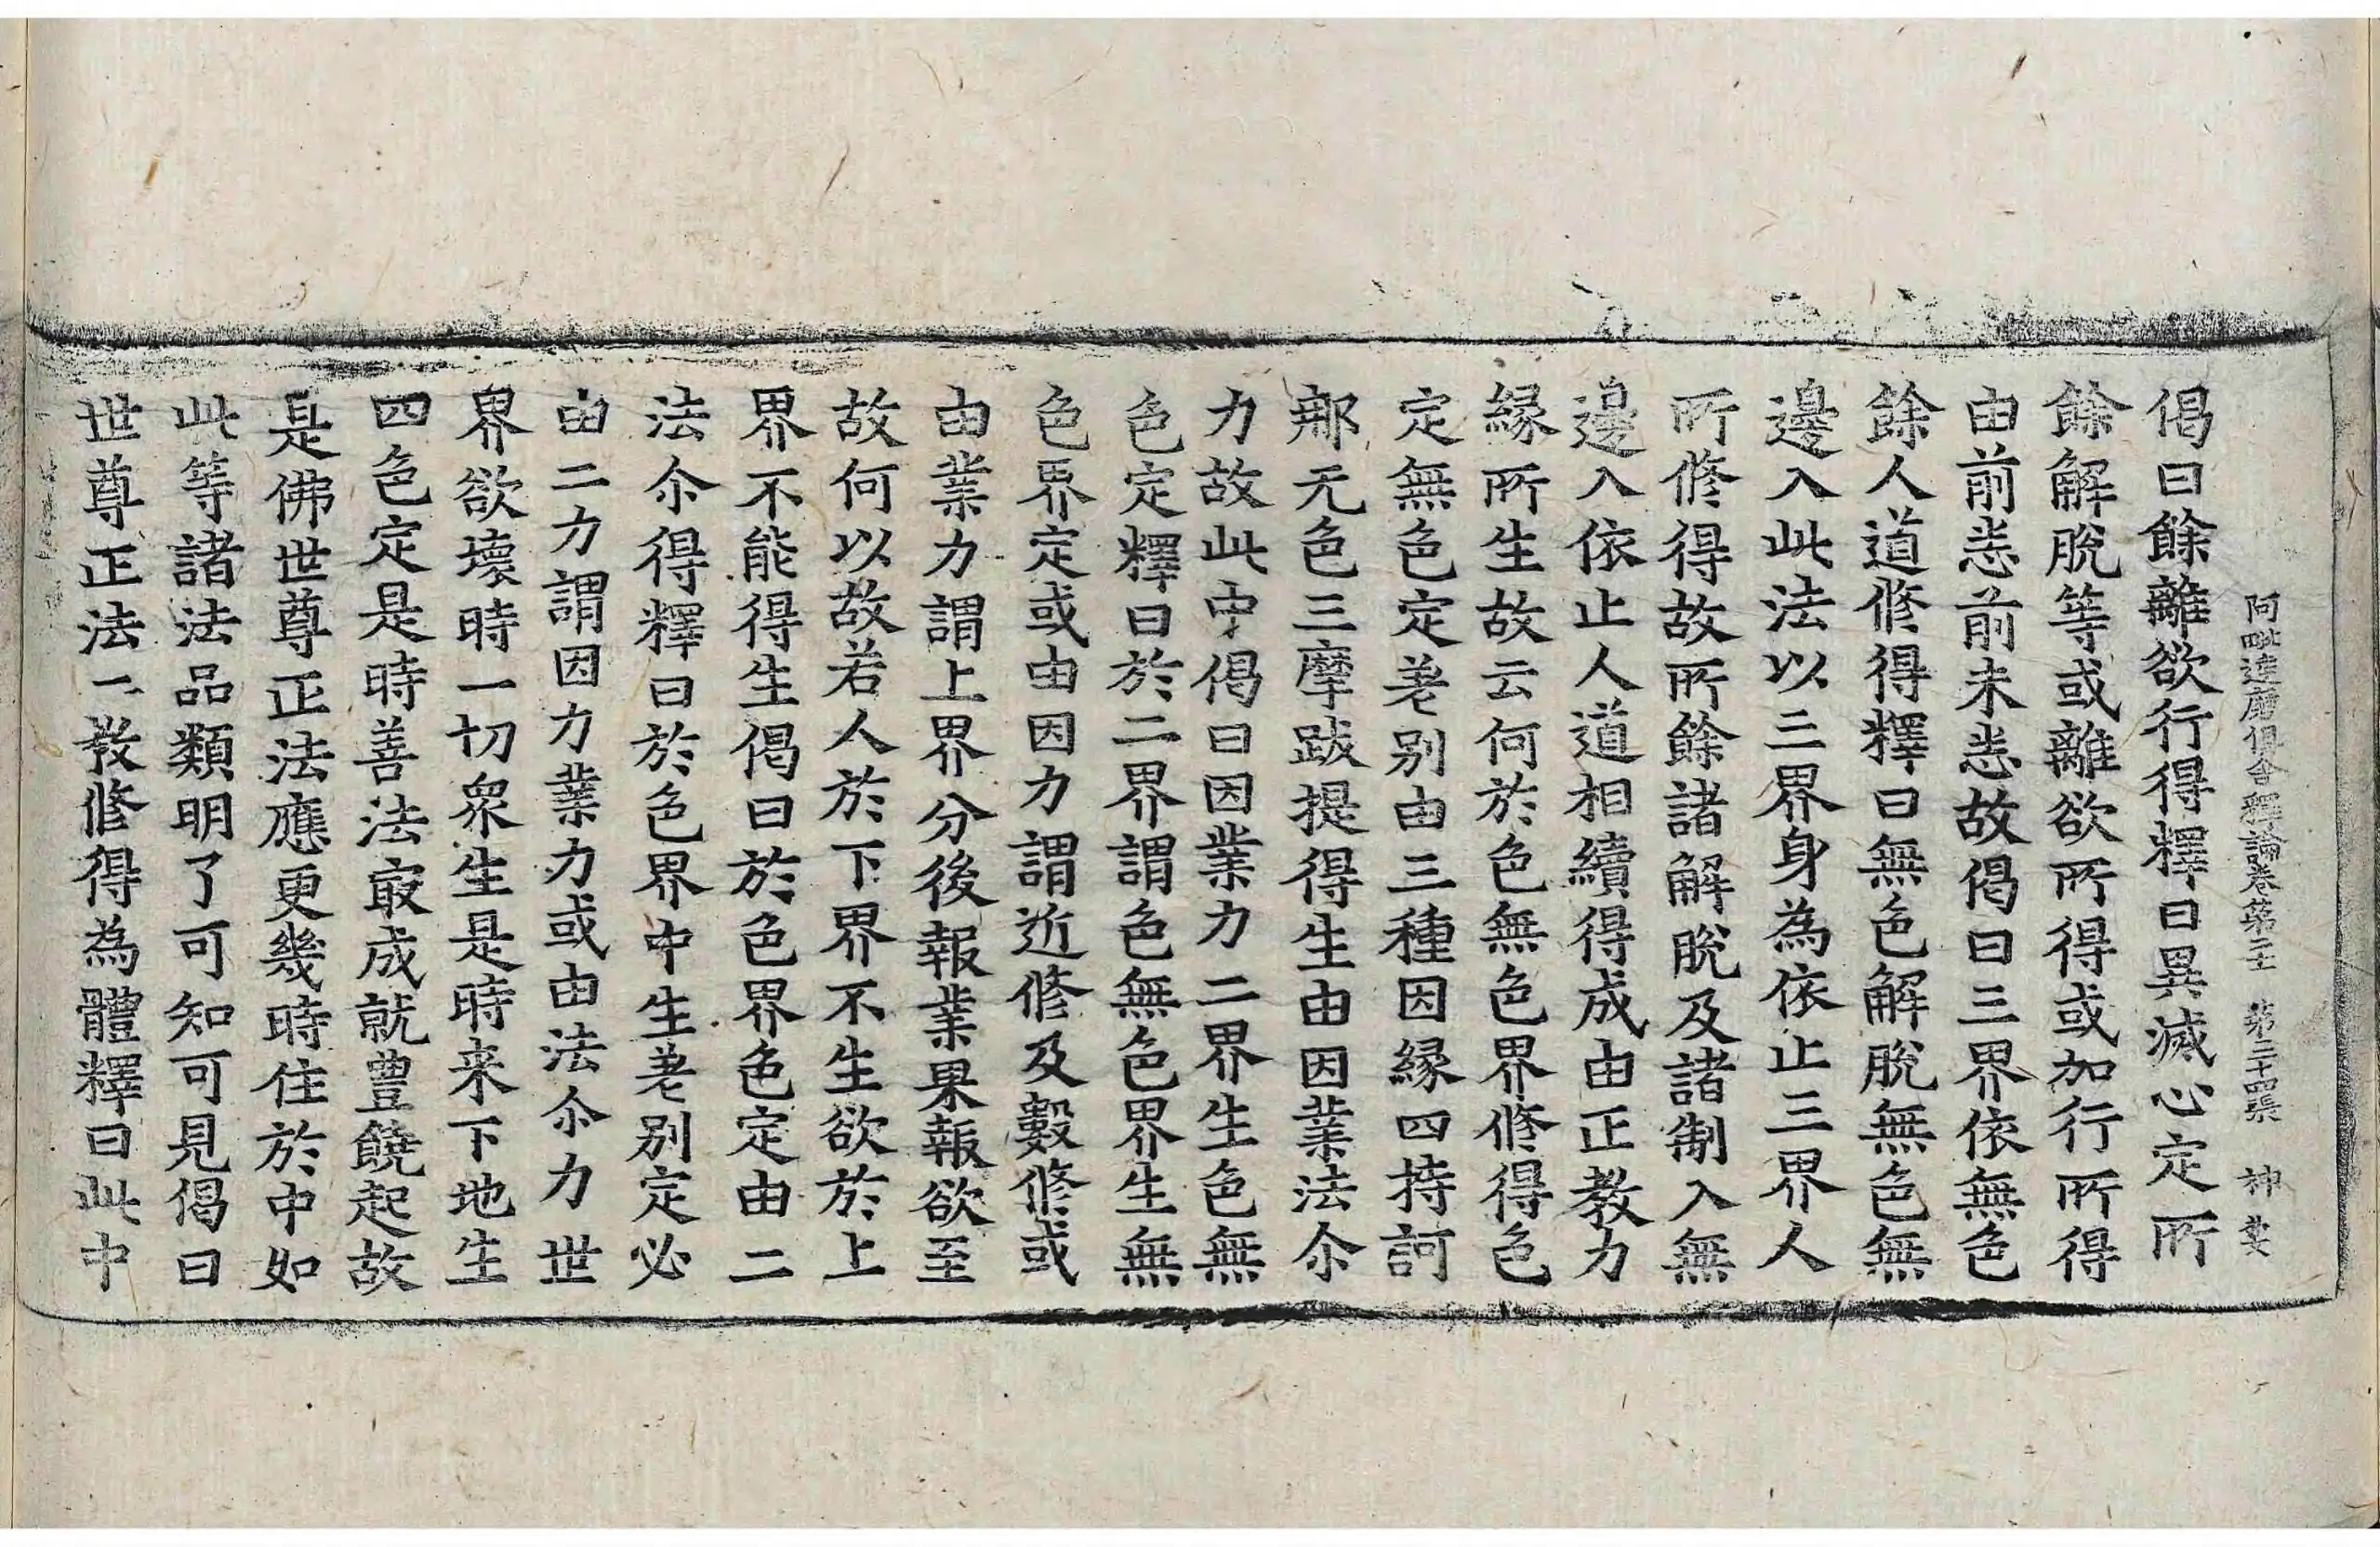 阿毗達磨俱舍釋論卷第二十一 第二十四張 神
偈曰餘離欲行得釋曰異滅心定所
餘解脫等或離欲所得或加行所得
由前恙前未恙故偈曰三界依無色
餘人道修得釋曰無色解脫無色無
邊入此法以三界身為依止三界人
所修得故所餘諸解脫及諸制入無
邊入依止人道相續得成由正教力
緣所生故云何於色無色界修得色
定無色定差别由三種因緣四持訶
那无色三摩跋提得生由因業法尒
力故此中偈曰因業力二界生色無
色定釋曰於二界謂色無色界生無
色界定或由因力謂近修及數修或
由業力謂上界分後報業果報欲至
故何以故若人於下界不生欲於上
界不能得生偈曰於色界色定由二
法尒得釋曰於色界中生差别定必
由二力謂因力業力或由法尒力世
界欲壞時一切衆生是時来下地生
四色定是時善法㝡成就豊饒起故
是佛世尊正法應更幾時住於中如
此等諸法品類明了可知可見偈曰
世尊正法二教修得為體釋曰此中